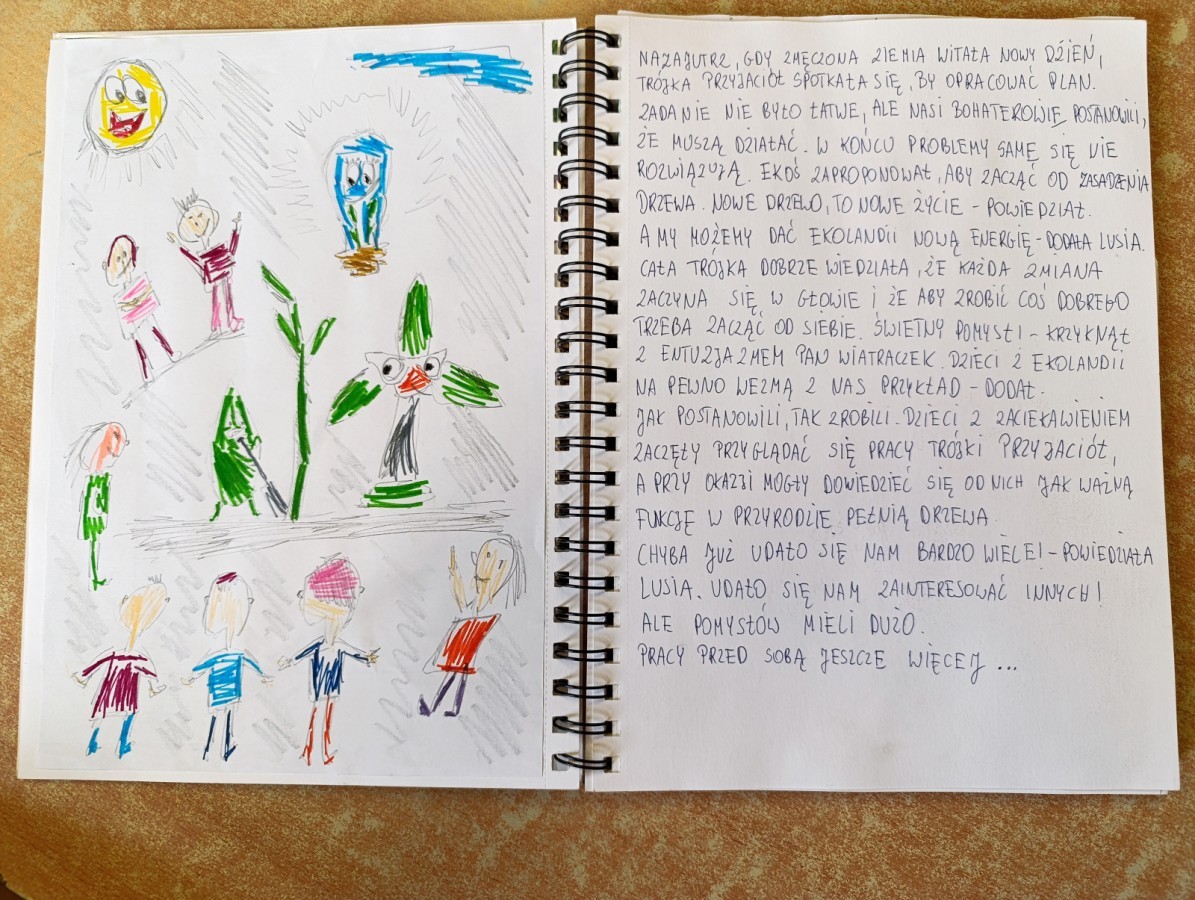 NAZAJUTRZ, GDY ZMĘCZONA ZIEMIA WITAŁA NOWY DZIEŃ,
TRÓJKA PRZYJACIÓŁ SPOTKAŁA SIĘ, BY OPRACOWAĆ PLAN.
ZADANIE NIE BYŁO ŁATWE, ALE NASI BOHATEROWIE POSTANOWILI,
ŻE MUSZĄ DZIAŁAĆ. W KOŃCU PROBLEMY SAMĘ SIĘ NIE
ROZWIĄZUJĄ. EKOŚ ZAPROPONOWAŁ, ABY ZACZĄĆ OD ZASADZENIA
DRZEWA. NOWE DRZEWO, TO NOWE ŻYCIE - POWIEDZIAŁ.
A MY MOŻEMY DAĆ EKOLANDII NOWĄ ENERGIĘ - DODAŁA LUSIA.
CAŁA TRÓJKA DOBRZE WIEDZIAŁA, ŻE KAŻDA ZMIANA
ZACZYNA SIĘ W GŁOWIE I ŻE ABY ZROBIĆ COŚ DOBREGO
TRZEBA ZACZĄĆ OD SIEBIE. ŚWIETNY POMYSŁ! - KRZYKNĄŁ
Z ENTUZJAZMEM PAN WIATRACZEK. DZIECI Z EKOLANDII
NA PEWNO WEZMĄ Z NAS PRZYKŁAD - DODAŁ.
JAK POSTANOWILI, TAK ZROBILI. DZIECI Z ZACIEKAWIENIEM
ZACZĘŁY PRZYGLĄDAĆ SIĘ PRACY TRÓJKI PRZYJACIÓŁ,
A PRZY OKAZJI MOGŁY DOWIEDZIEĆ SIĘ OD NICH JAK WAŻNĄ
FUKCJĘ W PRZYRODZIE PEŁNIĄ DRZEWA.
CHYBA JUŻ UDAŁO SIĘ NAM BARDZO WIELE! - POWIEDZIAŁA
LUSIA. UDAŁO SIĘ NAM ZAINTERESOWAĆ INNYCH!
ALE POMYSŁÓW MIELI DUŻO.
PRACY PRZED SOBĄ JESZCZE WIĘCEJ ...